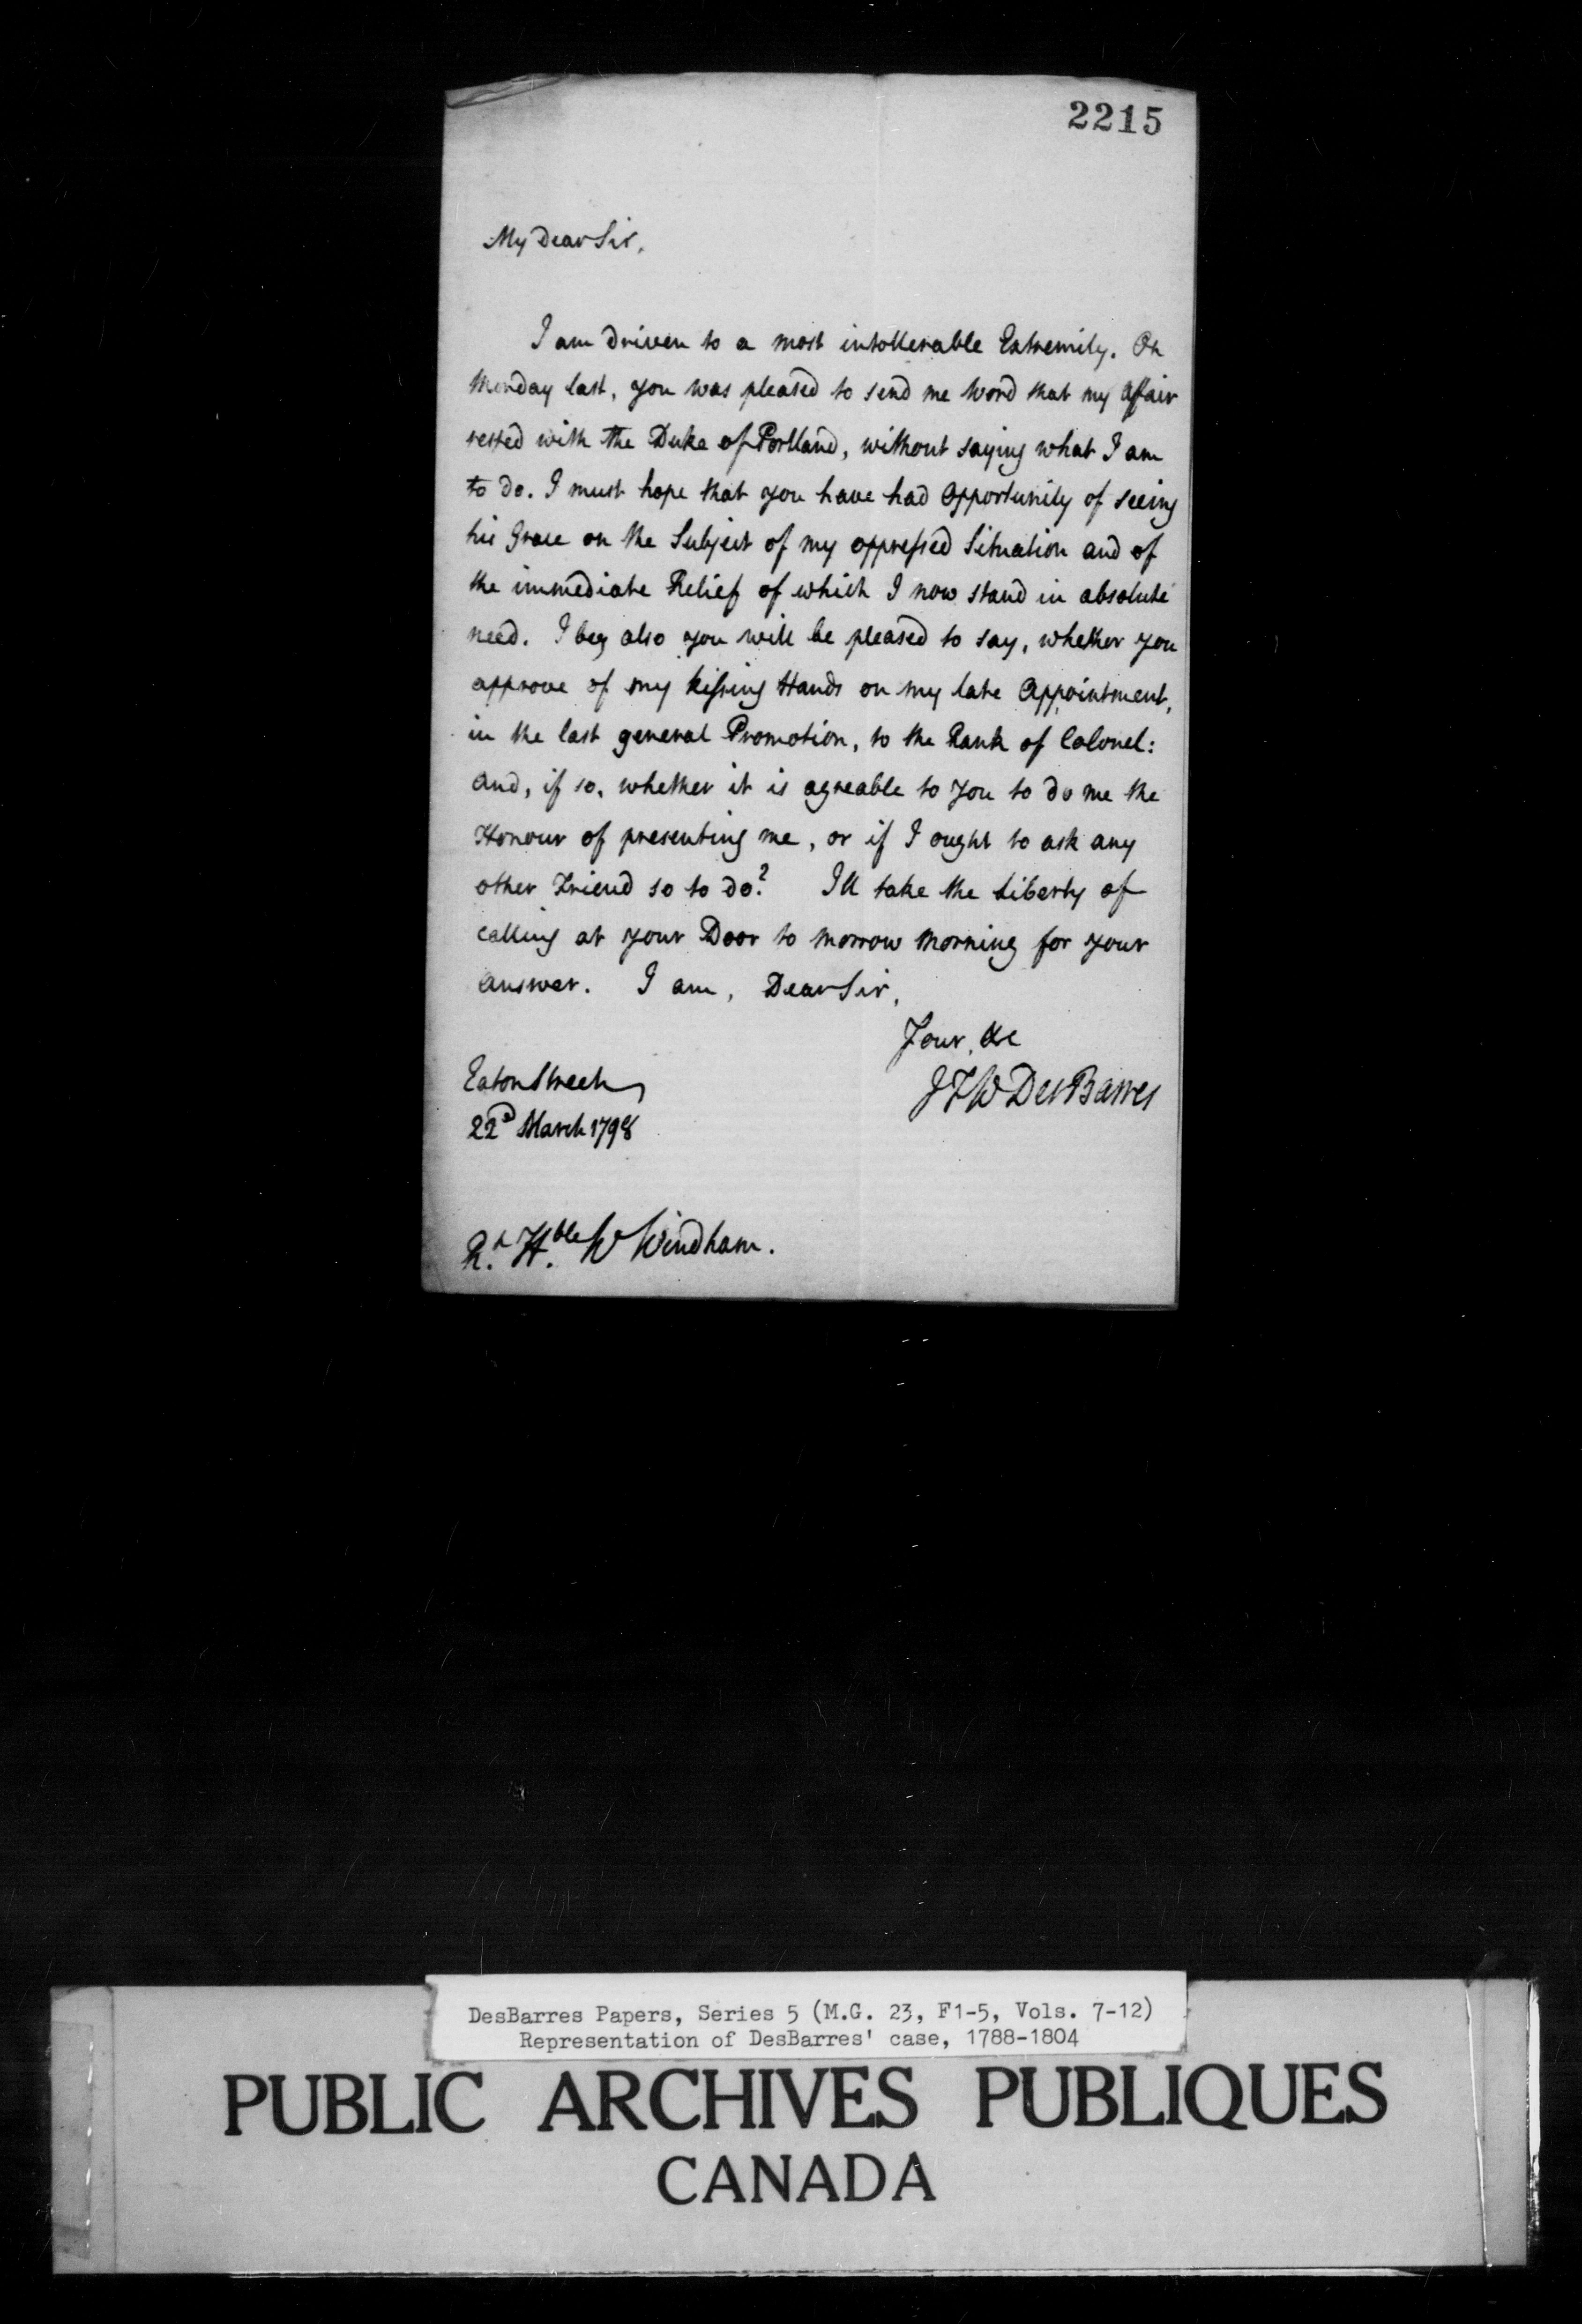 2215
My Dear Sir,
I am driven to a most intollerable Extremity. On
Monday last, you was pleased to send me Word that my Affair
rested with the Duke of Portland, without saying what I am
to do. I must hope that you have had Opportunity of seeing
his Grace on the Subject of my oppressed Situation and of
the immediate Relief of which I now stand in absolute
need. I beg also you will be pleased to say, whether you
approve of my kissing Hands on my late Appointment,
in the last general Promotion, to the Rank of Colonel:
and, if so, whether it is agreable to you to do me the
Honour of presenting me, or if I ought to ask any
other Friend so to do? I'll take the Liberty of
calling at your Door to morrow morning for your
answer. I am, Dear Sir,
Your, &c
J F W DesBarres
Eaton Street
22d March 1798
Rt. Hble. W Windham.
DesBarres Papers, Series 5 (M.G. 23, F1-5, Vols. 7-12)
Representation of DesBarres' case, 1788-1804
PUBLIC ARCHIVES PUBLIQUES
CANADA